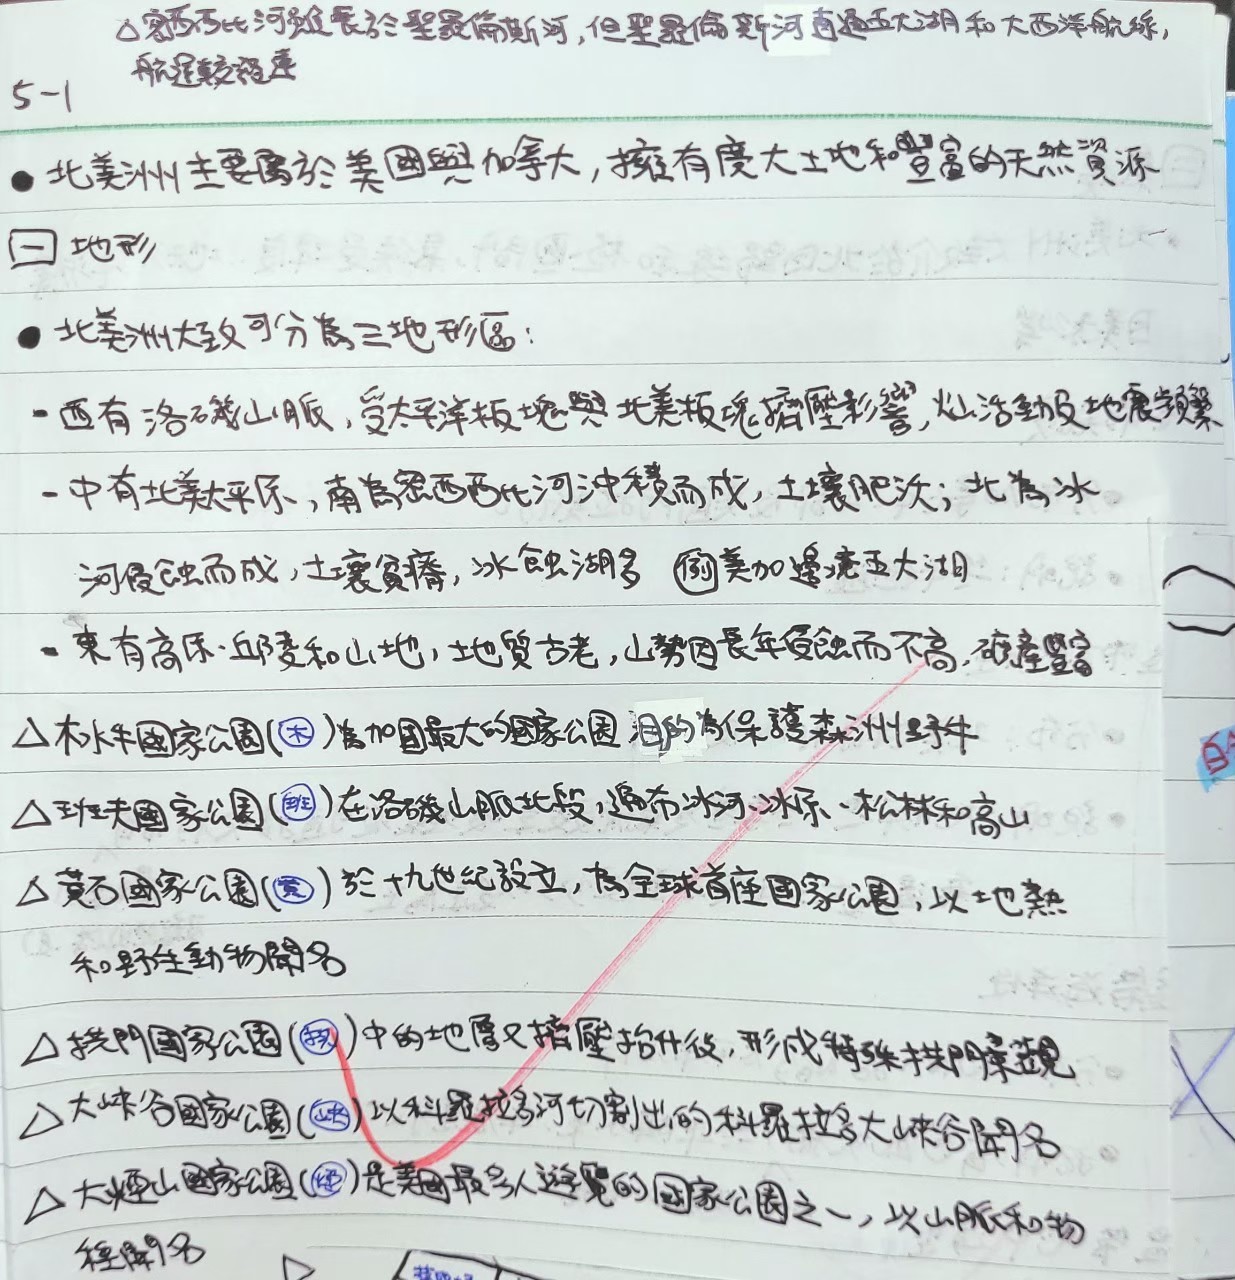 △密西西比河雖長於聖羅倫斯河,但聖羅倫斯河直通五大湖和大西洋航線,
航運較發達
5-1
● 北美洲主要屬於美國與加拿大,擁有廣大土地和豐富的天然資源
一 地形
● 北美洲大致可分為三地形區:
- 西有洛磯山脈,受太平洋板塊與北美板塊擠壓影響,火山活動及地震頻繁
- 中有北美大平原,南為密西西比河沖積而成,土壤肥沃;北為冰
河侵蝕而成,土壤貧瘠,冰蝕湖多 例美加邊境五大湖
- 東有高原、丘陵和山地,地質古老,山勢因長年侵蝕而不高,礦產豐富
△木水牛國家公園(木)為加國最大的國家公園,目的為保護森洲野牛
△班夫國家公園(班)在洛磯山脈北段,遍布冰河、冰原、松林和高山
△黃石國家公園(黃)於十九世紀設立,為全球首座國家公園,以地熱
和野生動物聞名
△拱門國家公園(拱)中的地層又擠壓抬升後,形成特殊拱門景觀
△大峽谷國家公園(峽)以科羅拉多河切割出的科羅拉多大峽谷聞名
△大煙山國家公園(煙)是美國最多人遊覽的國家公園之一,以山脈和物
種聞名